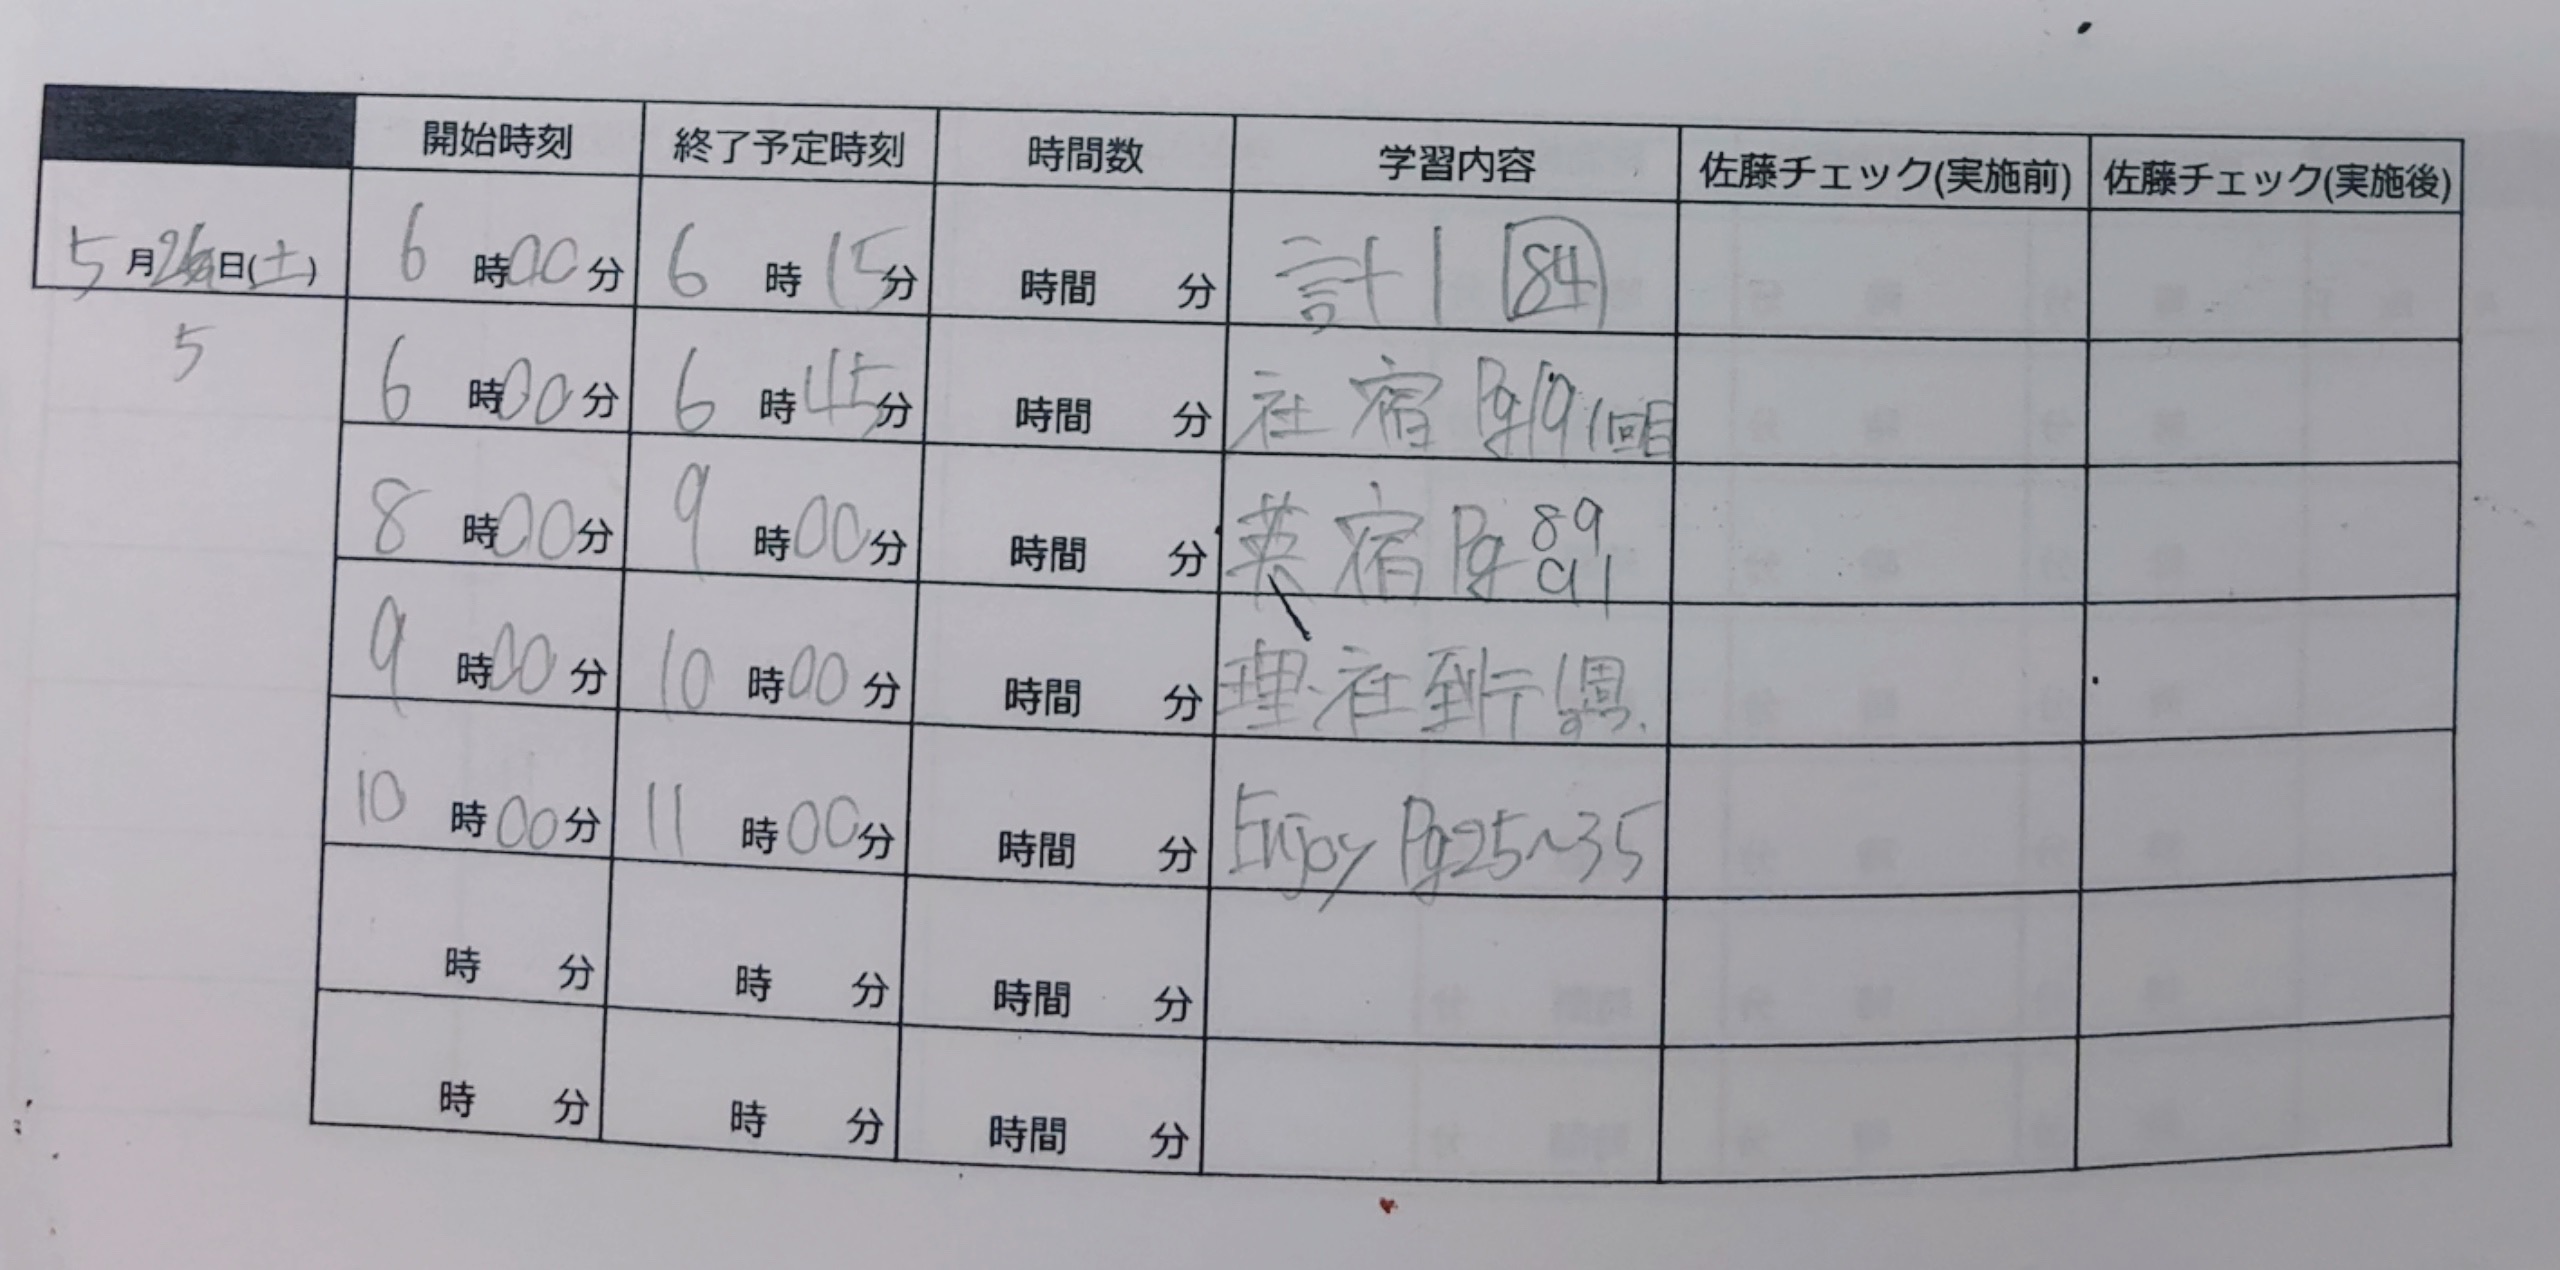 開始時刻 終了予定時刻 時間数 学習内容 佐藤チェック(実施前) 佐藤チェック(実施後)
5月 日(土) 6時00分 6時15分 時間 分 計1 84
5
6時00分 6時45分 時間 分 社 宿 Pg19 1回目
8時00分 9時00分 時間 分 英 宿 Pg 89
91
9時00分 10時00分 時間 分 理社
10時00分 11時00分 時間 分 Enjoy Pg25~35
時 分 時 分 時間 分
時 分 時 分 時間 分